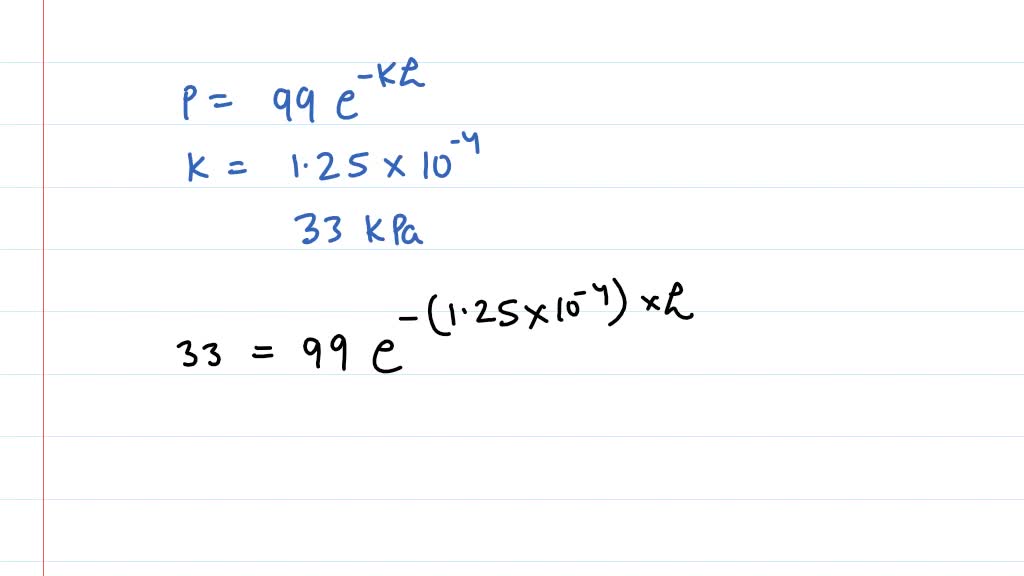 P = 99 e^-kh
K = 1.25 × 10^-4
33 KPa
33 = 99 e^-(1.25×10^-4) × h